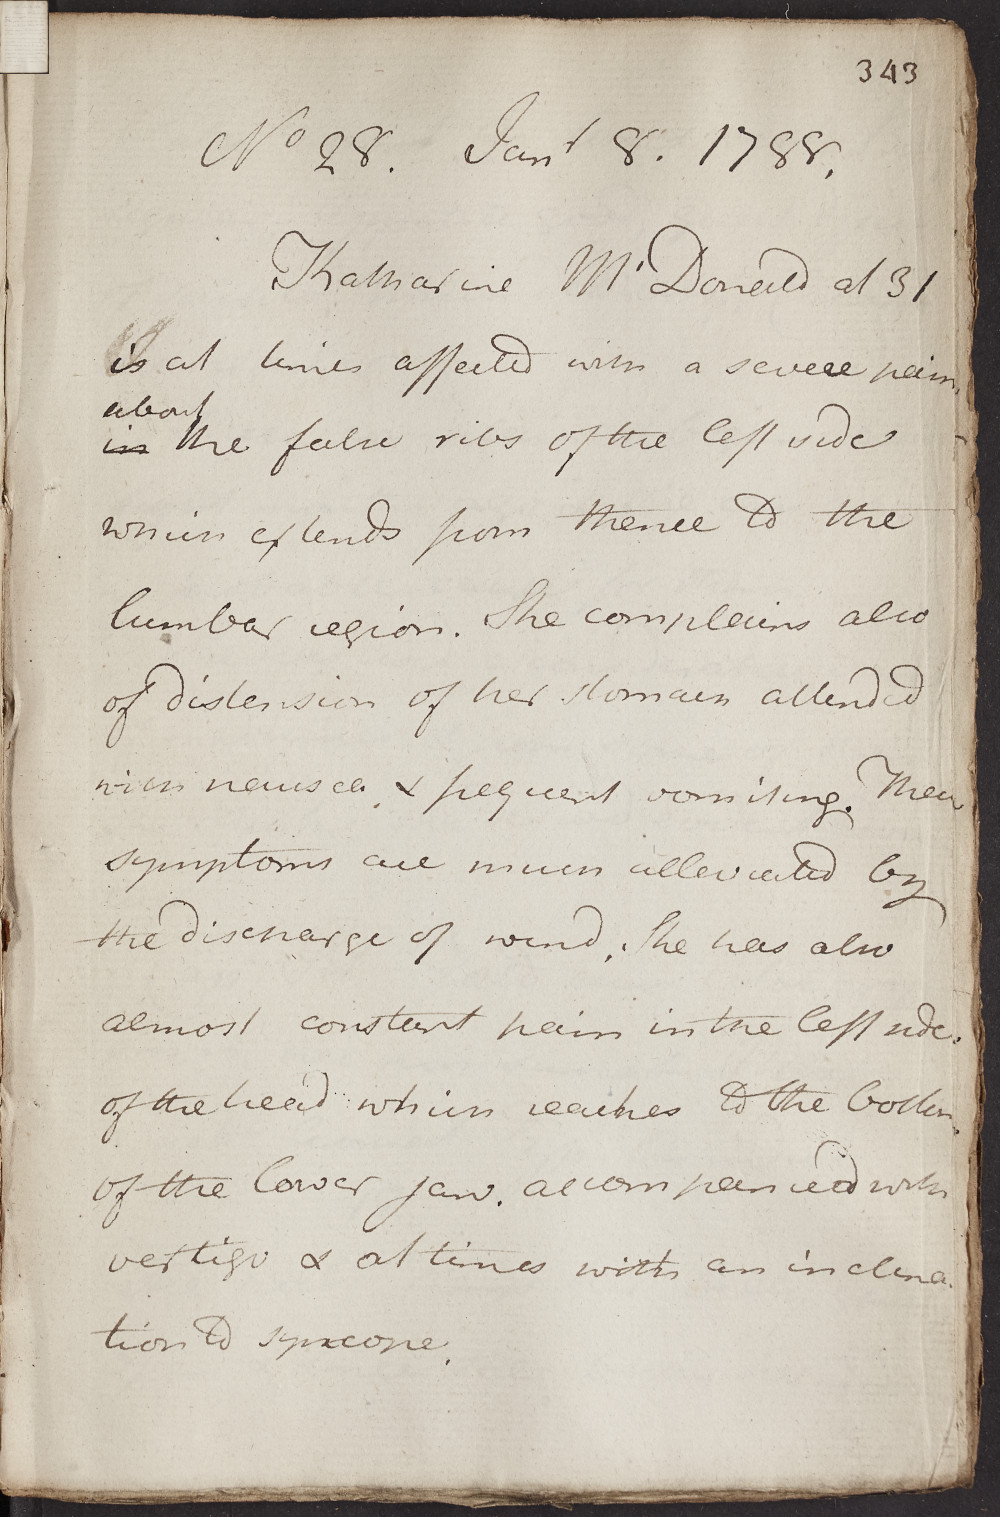 343
No 28. Jany 8. 1788.
Katharine Mc Donald at 31
is at times affected with a severe pain
about
in the false ribs of the left side
which extends from thence to the
lumbar region. She complains also
of distension of her stomach attended
with nausea & frequent vomiting. These
symptoms are much alleviated by
the discharge of wind. She has also
almost constant pain in the left side
of the head which reaches to the bottom
of the lower jaw. accompanied with
vertigo & at times with an inclina-
tion to syncope.